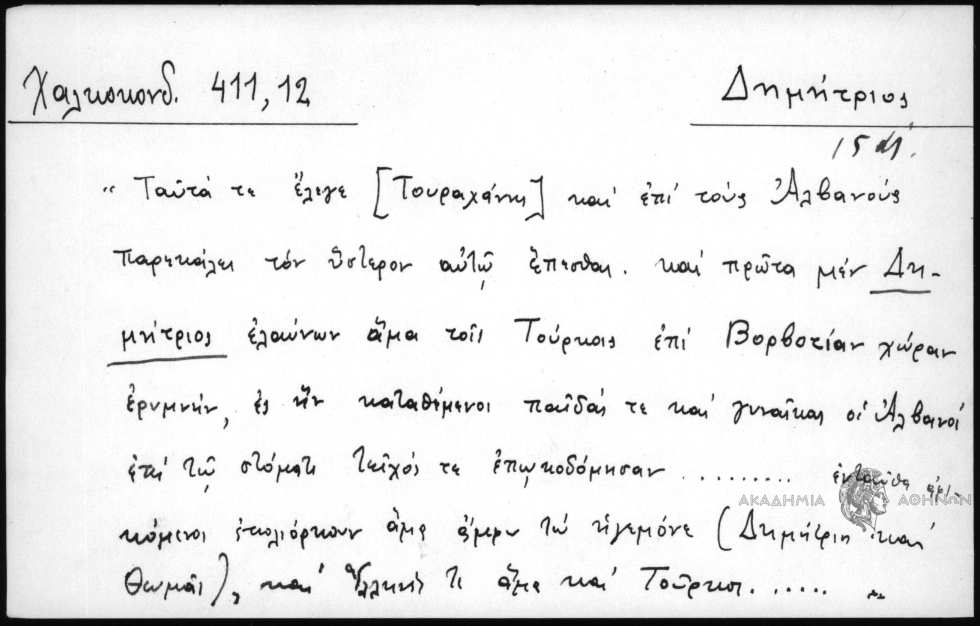 Χαλκοκονδ. 411,12
Δημήτριος
"Ταῦτά τε ἔλεγε [Τουραχάνης] καί ἐπί τούς Ἀλβανούς
παρεκάλει τόν ὕστερον αὐτῷ ἕπεσθαι. καί πρῶτα μέν Δη-
μήτριος ἐλαύνων ἅμα τοῖς Τούρκοις ἐπί Βορβοτίαν χώραν
ἐρυμνήν, ἐς ἥν καταθέμενοι παῖδάς τε καί γυναῖκας οἱ Ἀλβανοί
ἐπί τῷ στόματι τεῖχός τε ἐπῳκοδόμησαν ......... ἐνταῦθα ἀφι-
κόμενοι ἐπολιόρκουν ἅμα ἄμφω τώ ἡγεμόνε (Δημήτριος καί
Θωμᾶς), καί Ἕλληνές τε ἅμα καί Τοῦρκοι......"
ΑΚΑΔΗΜΙΑ ΑΘΗΝΩΝ